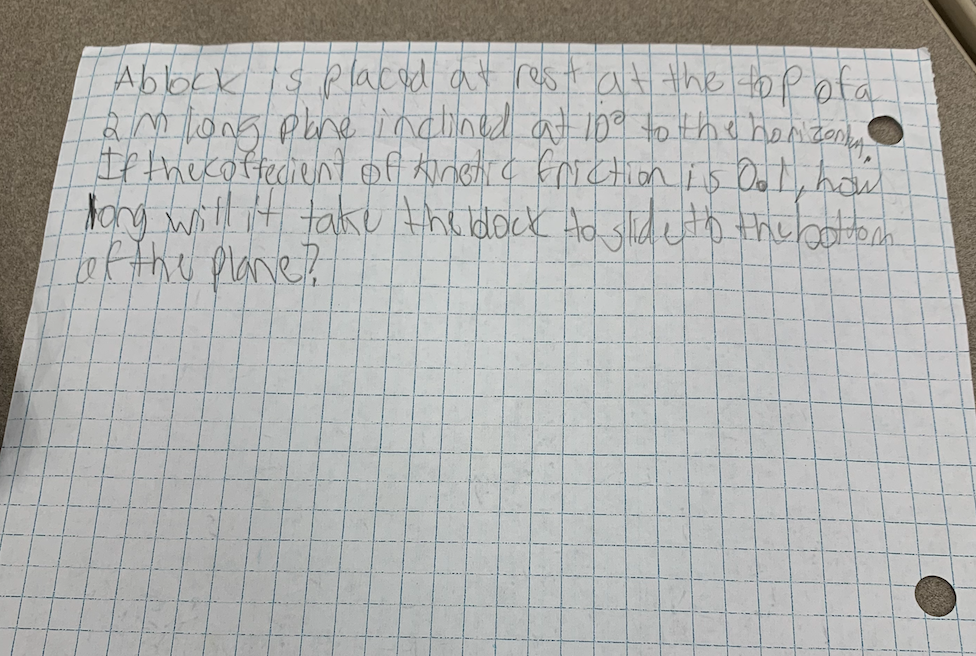 A block is placed at rest at the top of a
2 m long plane inclined at 10° to the horizontal.
If the coffecient of kinetic friction is 0.1, how
long will it take the block to slide to the bottom
of the plane?